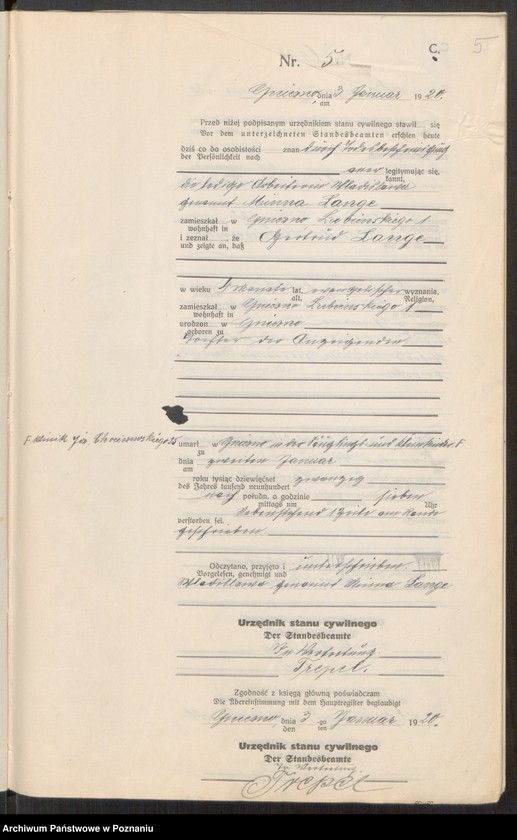 C.
5
Nr. 5
Gniezno, dnia 3 Januar 1920.
am
Przed niżej podpisanym urzędnikiem stanu cywilnego stawił się
Vor dem unterzeichneten Standesbeamten erschien heute
dziś co do osobistości znan durch Todesbescheinigung
der Persönlichkeit nach
aner legitymując się,
kannt,
die ledige Arbeiterin Wladislawa
genannt Minna Lange
zamieszkał w Gniezno Lubienskiego 1
wohnhaft in
i zeznał , że Gertrud Lange
und zeigte an, daß
w wieku 4 Monate lat, evangelischer wyznania,
alt, Religion,
zamieszkał w Gniezno Lubienskiego 1
wohnhaft in
urodzon w Gniezno
geboren zu
Tochter der Anzeigenden
F. Klinik Jãs 25 umarł w Gniezno in der Säuglings- und Kleinkinder. F
zu
dnia zweiten Januar
am
roku tysiąc dziewięćset zwanzig
des Jahres tausend neunhundert
nach połudn. o godzinie sieben
mittags um Uhr
verstorben sei. Nebenstehend 1 Zeile am Rande
geschrieben
Odczytano, przyjęto i unterschrieben.
Vorgelesen, genehmigt und
Wladislawa genannt Minna Lange
Urzędnik stanu cywilnego
Der Standesbeamte
In Vertretung
Trepel.
Zgodność z księgą główną poświadczam
Die Übereinstimmung mit dem Hauptregister beglaubigt
Gniezno, dnia 3 go Januar 1920.
den ten
Urzędnik stanu cywilnego
Der Standesbeamte
In Vertretung
Trepel
Archiwum Państwowe w Poznaniu